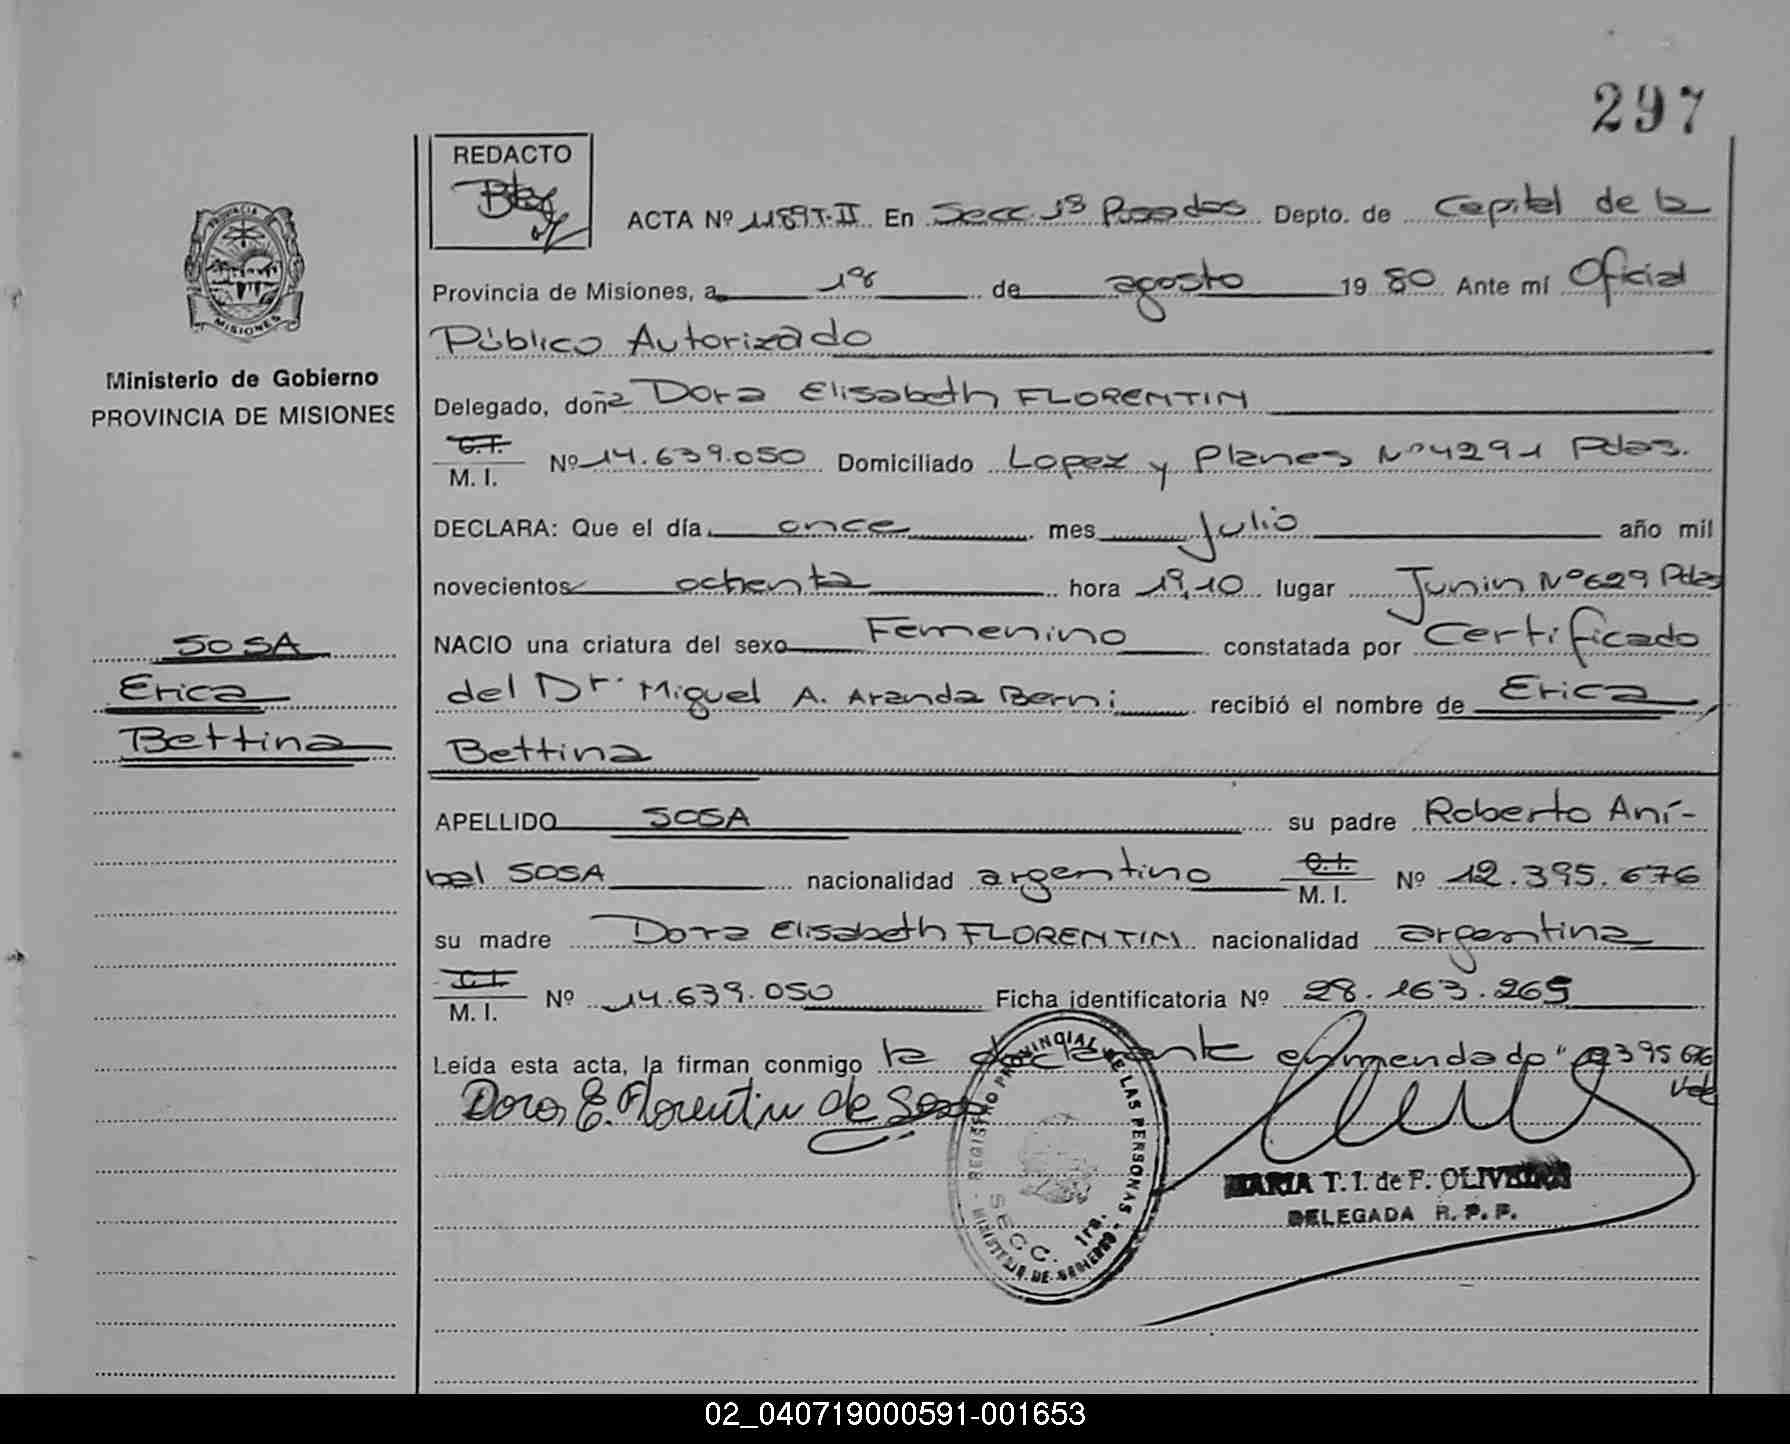 297
REDACTO
ACTA Nº 1189 T. II En Secc. 1ª Posadas Depto. de Capital de la
PROVINCIA
MISIONES
Provincia de Misiones, a 1º de agosto 1980 Ante mí Oficial
Público Autorizado
Ministerio de Gobierno
PROVINCIA DE MISIONES
Delegado, doña Dora Elisabeth FLORENTIN
C.I.
M. I. Nº 14.639.050 Domiciliado Lopez y Planes Nº 4291 Pdas.
DECLARA: Que el día once mes Julio año mil
novecientos ochenta hora 19,10 lugar Junin Nº 629 Pdas
NACIO una criatura del sexo Femenino constatada por Certificado
del Dr. Miguel A. Aranda Berni recibió el nombre de Erica
Bettina
SOSA
Erica
Bettina
APELLIDO SOSA su padre Roberto Aní-
bal SOSA nacionalidad argentino C.I.
M. I. Nº 12.395.676
su madre Dora Elisabeth FLORENTIN nacionalidad argentina
C.I.
M. I. Nº 14.639.050 Ficha identificatoria Nº 28.163.265
Leída esta acta, la firman conmigo la declarante enmendado "395 676 Vale
Dora E. Florentin de Sosa
REGISTRO PROVINCIAL DE LAS PERSONAS - MINISTERIO DE GOBIERNO -
SECC. 1ra.
MARIA T. I. de F. OLIVEIRA
DELEGADA R. P. P.
02_040719000591-001653